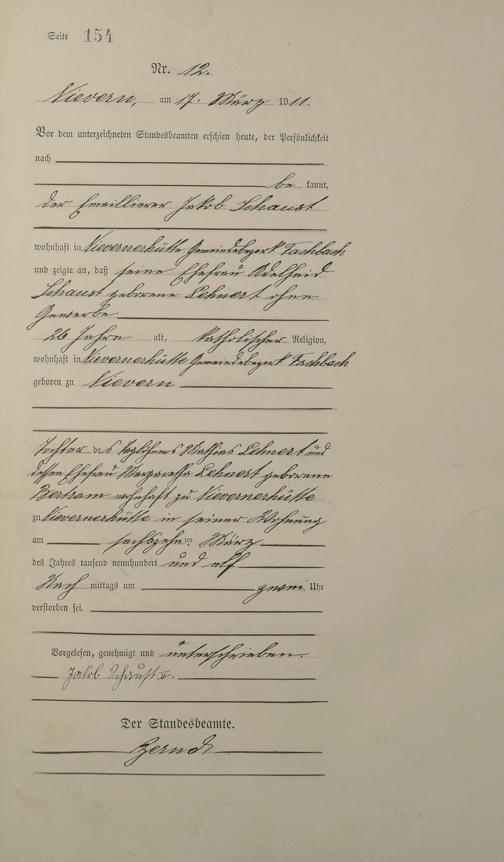 Seite 154
Nr. 12.
Nievern, am 17. März 1911.
Vor dem unterzeichneten Standesbeamten erschien heute, der Persönlichkeit
nach
be kannt,
der Emaillierer Jakob Schaust
wohnhaft in Nievernerhütte Gemeindebezirk Fachbach
und zeigte an, daß seine Ehefrau Adelheid
Schaust geborene Lehnert ohne
Gewerbe
26 Jahre alt, katholischer Religion,
wohnhaft in Nievernerhütte Gemeindebezirk Fachbach
geboren zu Nievern
Tochter des Taglöhners Mathias Lehnert und
dessen Ehefrau Margaretha Lehnert geborene
Bertram wohnhaft zu Nievernerhütte
zu Nievernerhütte in seiner Wohnung
am sechszehnten März
des Jahres tausend neunhundert und elf
Nach mittags um zwei Uhr
verstorben sei.
Vorgelesen, genehmigt und unterschrieben.
Jakob Schaust
Der Standesbeamte.